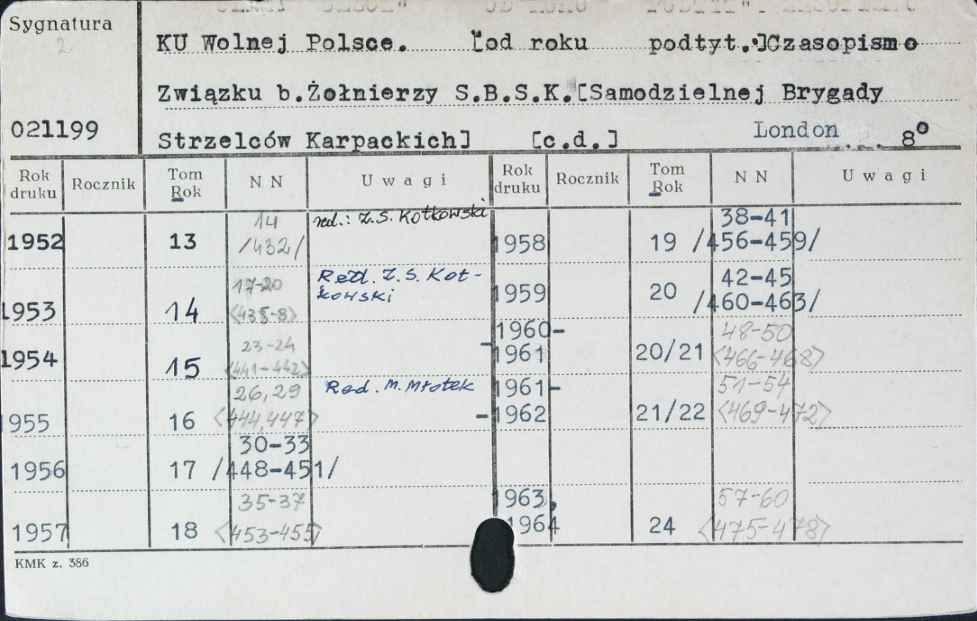 Sygnatura
2
KU Wolnej Polsce. [od roku podtyt.]Czasopismo
Związku b.Żołnierzy S.B.S.K.[Samodzielnej Brygady
021199
Strzelców Karpackich] [c.d.] London 8°
Rok druku Rocznik Tom Rok NN Uwagi Rok druku Rocznik Tom Rok NN Uwagi
1952 13 14 /432/ red.: Z.S. Kotkowski 1958 19 38-41 /456-459/
1953 14 17-20 <435-8> Red. Z. S. Kot-kowski 1959 20 42-45 /460-463/
1954 15 23-24 <441-442> 1960-1961 20/21 48-50 <466-468>
1955 16 26, 29 <444,447> Red. M. Młotek 1961-1962 21/22 51-54 <469-472>
1956 17 30-33 /448-451/
1957 18 35-37 <453-455> 1963, 1964 24 57-60 <475-478>
KMK z. 386